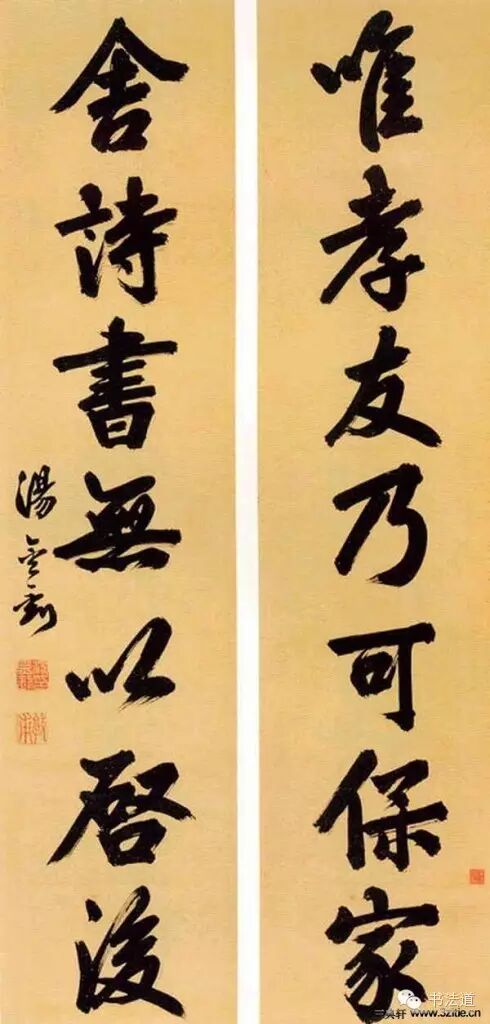 唯孝友乃可保家
舍詩書無以啓後
湯金釗
书法道
www.3zitie.cn